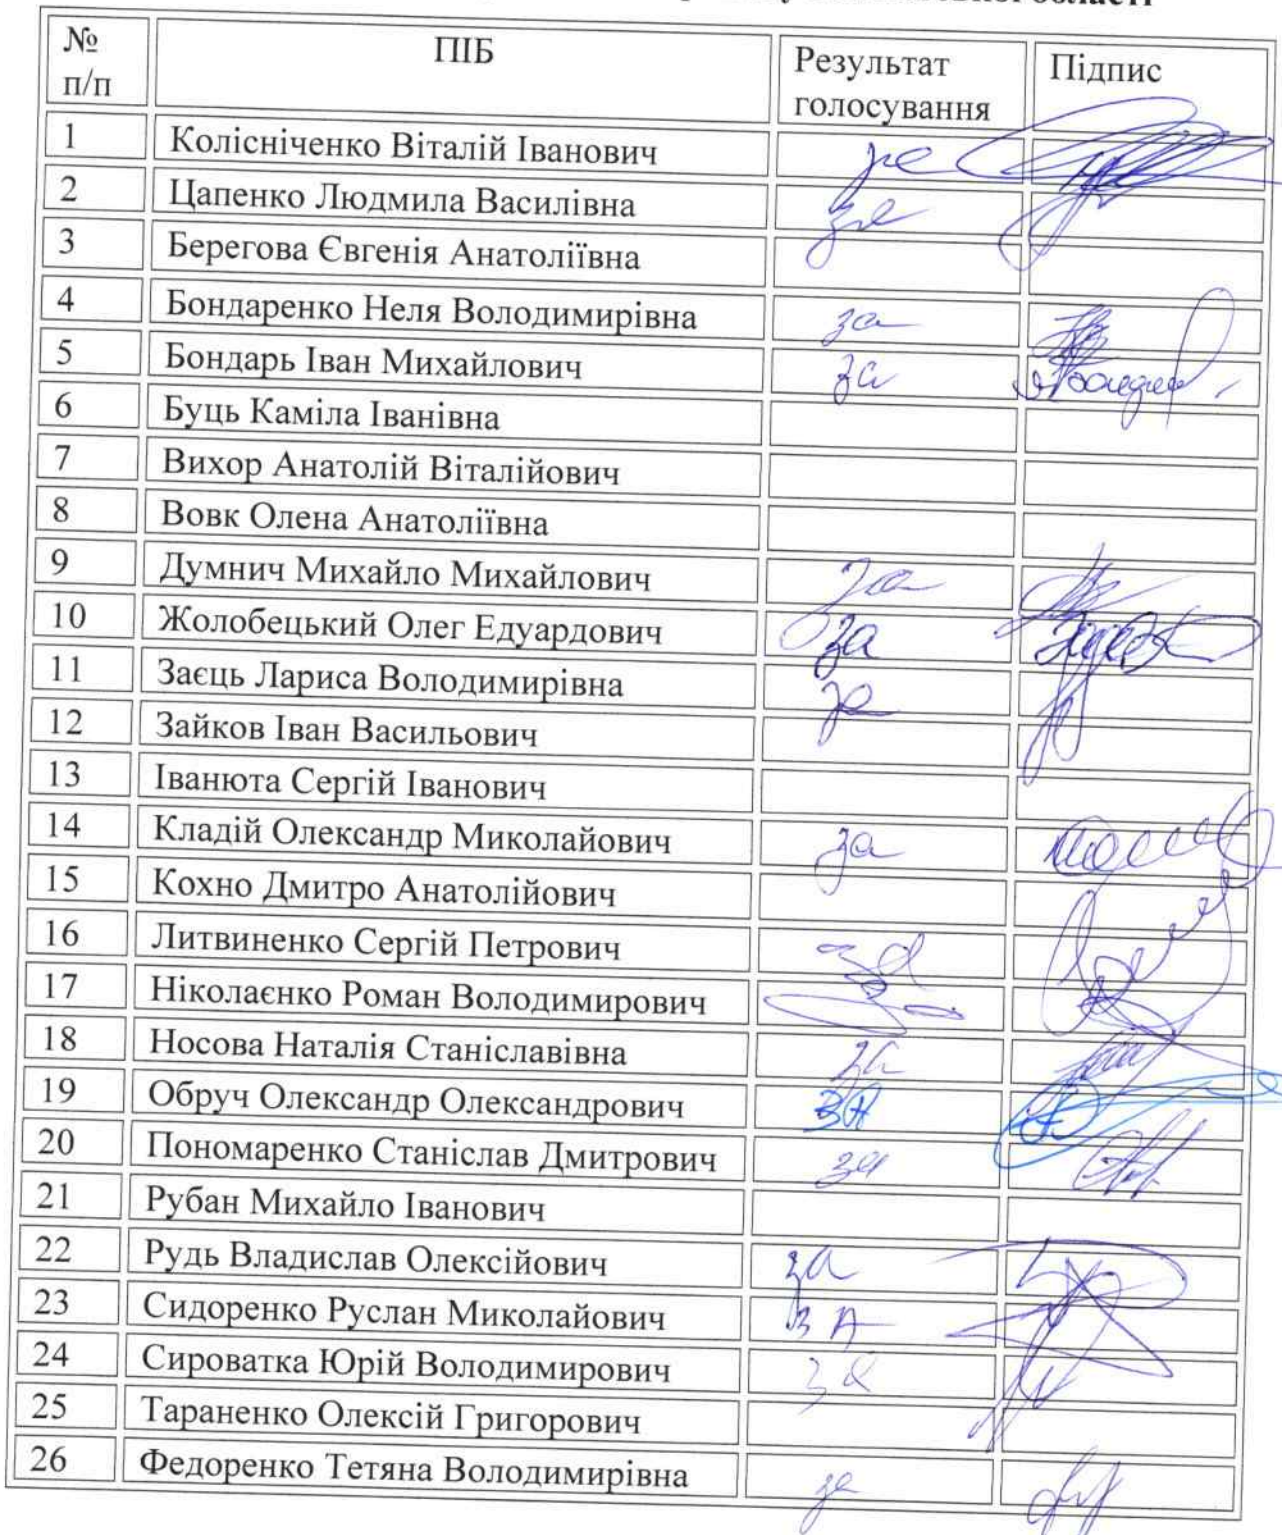 області
№ п/п ПІБ Результат голосування Підпис
1 Колісніченко Віталій Іванович за
2 Цапенко Людмила Василівна за
3 Берегова Євгенія Анатоліївна
4 Бондаренко Неля Володимирівна за
5 Бондарь Іван Михайлович за
6 Буць Каміла Іванівна
7 Вихор Анатолій Віталійович
8 Вовк Олена Анатоліївна
9 Думнич Михайло Михайлович за
10 Жолобецький Олег Едуардович за
11 Заєць Лариса Володимирівна за
12 Зайков Іван Васильович
13 Іванюта Сергій Іванович
14 Кладій Олександр Миколайович за
15 Кохно Дмитро Анатолійович
16 Литвиненко Сергій Петрович за
17 Ніколаєнко Роман Володимирович за
18 Носова Наталія Станіславівна за
19 Обруч Олександр Олександрович ЗА
20 Пономаренко Станіслав Дмитрович за
21 Рубан Михайло Іванович
22 Рудь Владислав Олексійович за
23 Сидоренко Руслан Миколайович ЗА
24 Сироватка Юрій Володимирович за
25 Тараненко Олексій Григорович
26 Федоренко Тетяна Володимирівна за